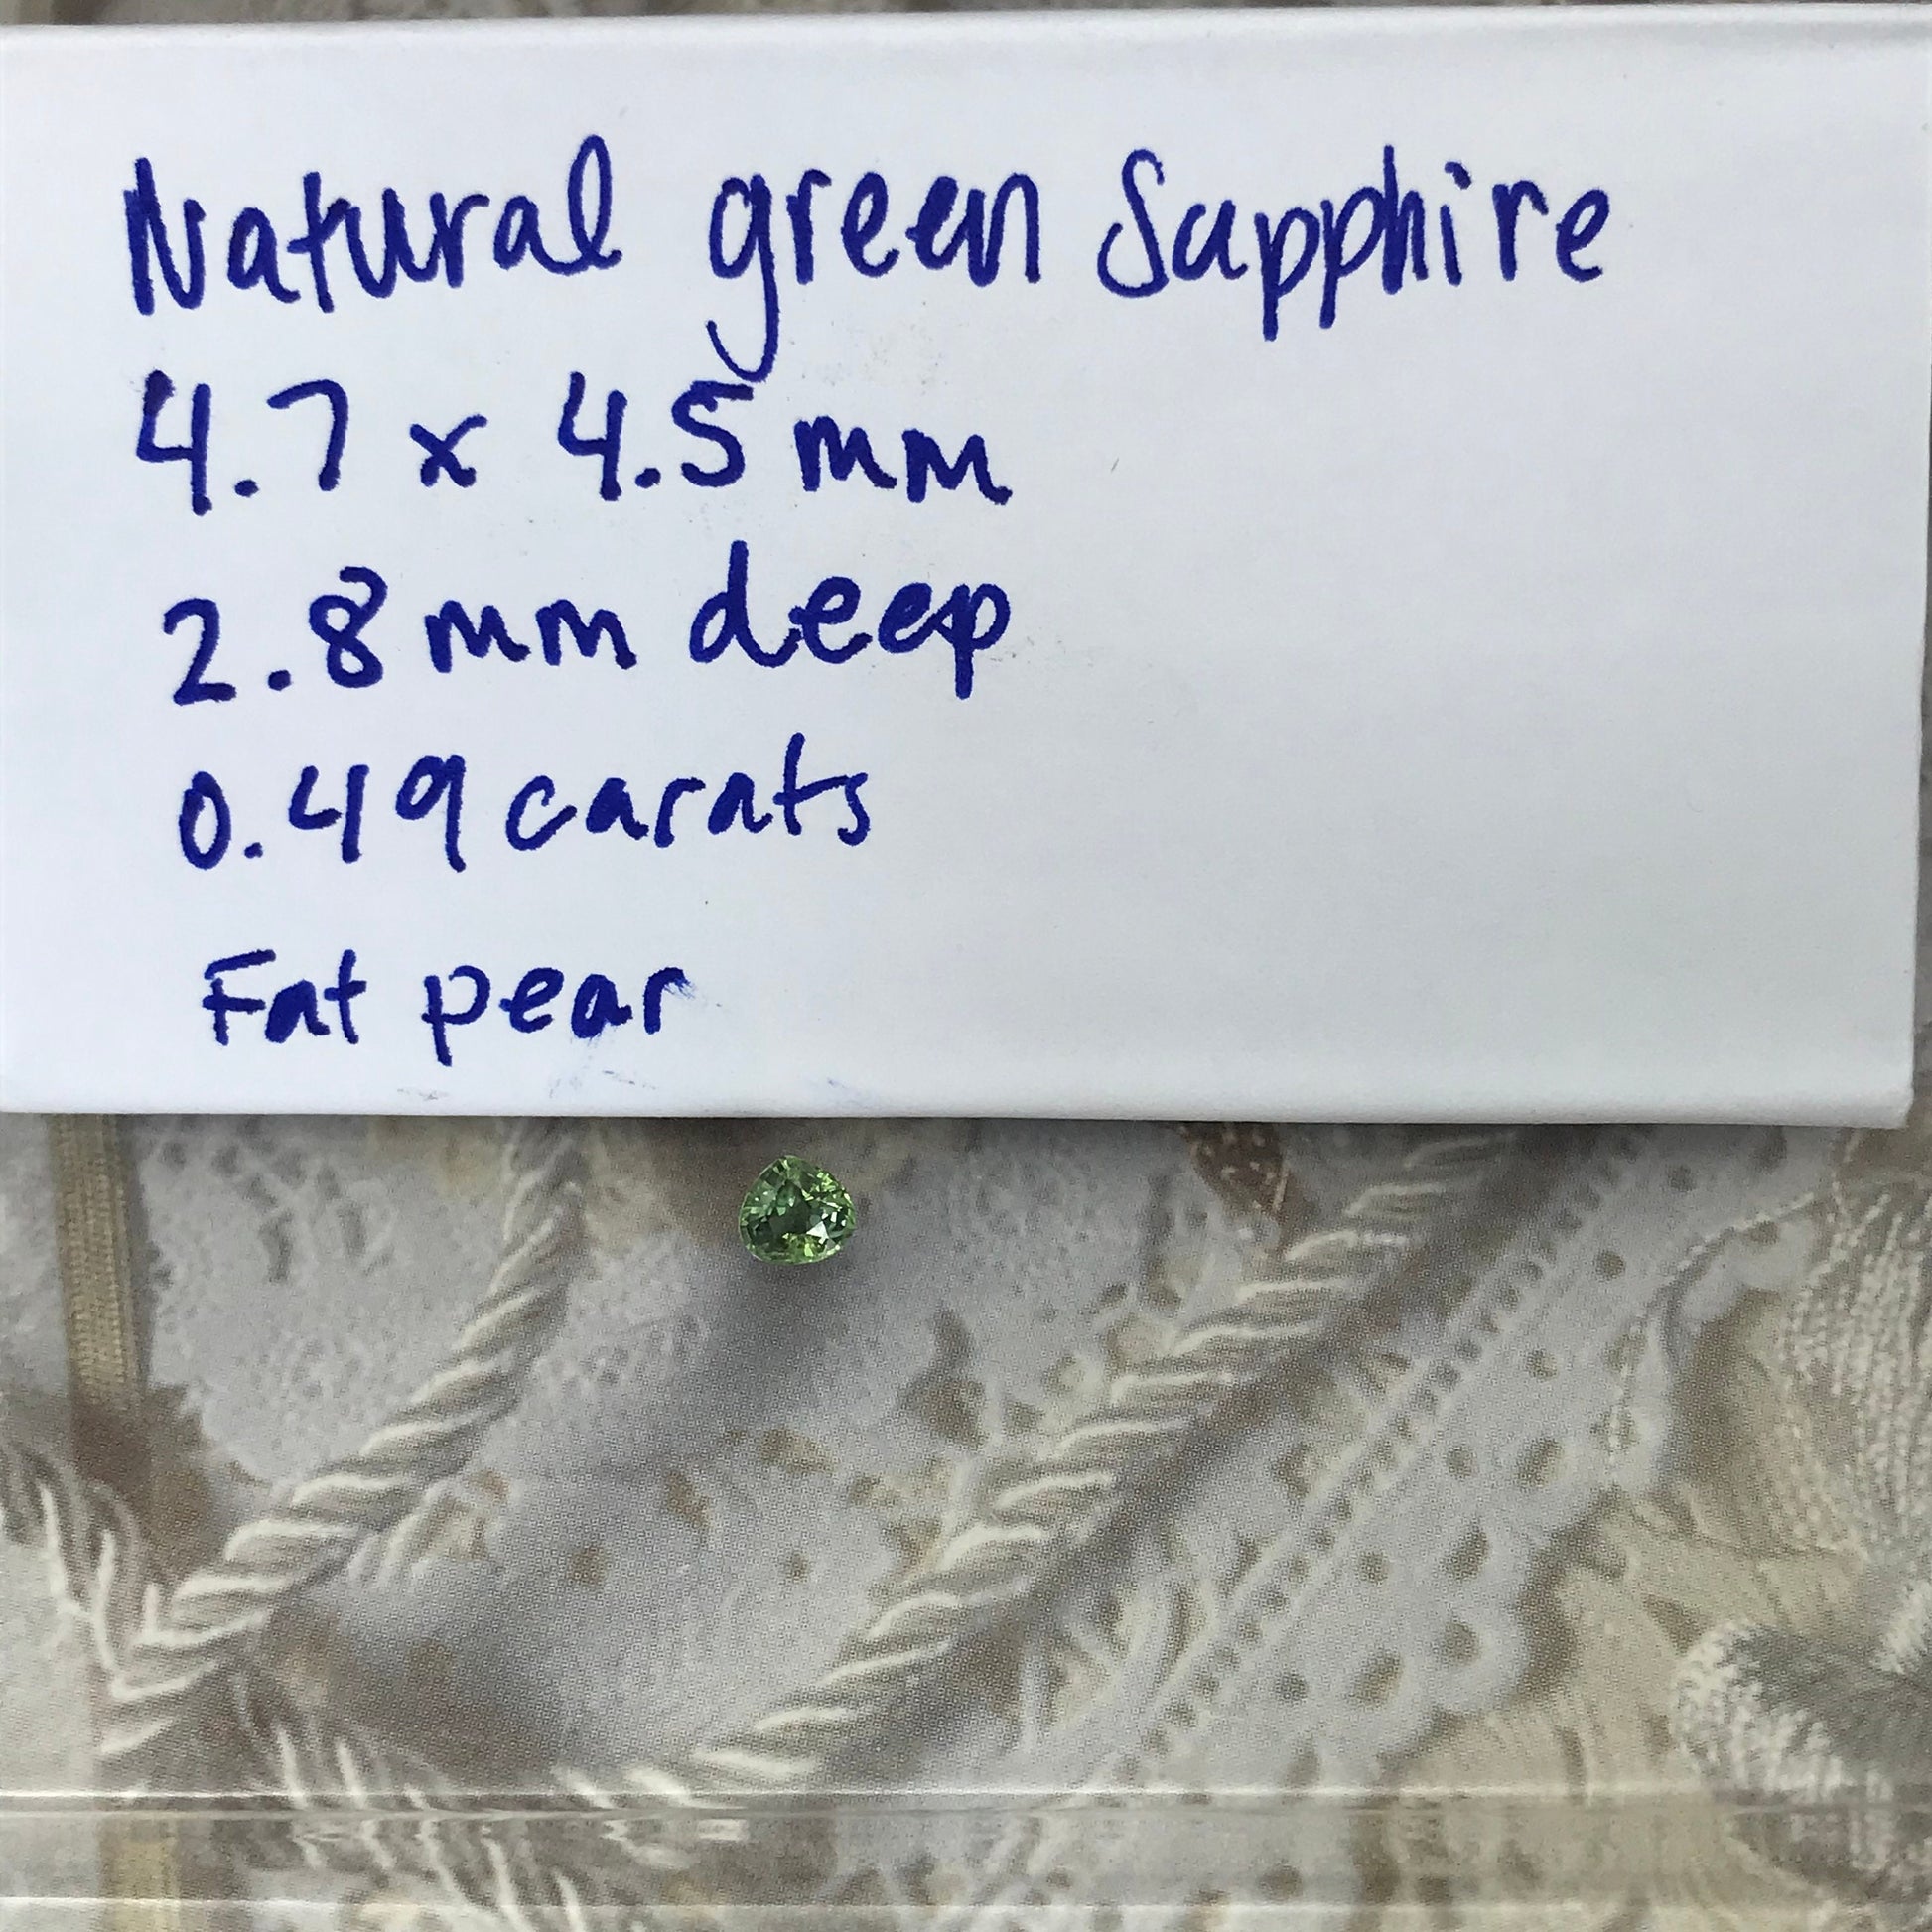 Natural green Sapphire
4.7 x 4.5 mm
2.8 mm deep
0.49 carats
Fat pear